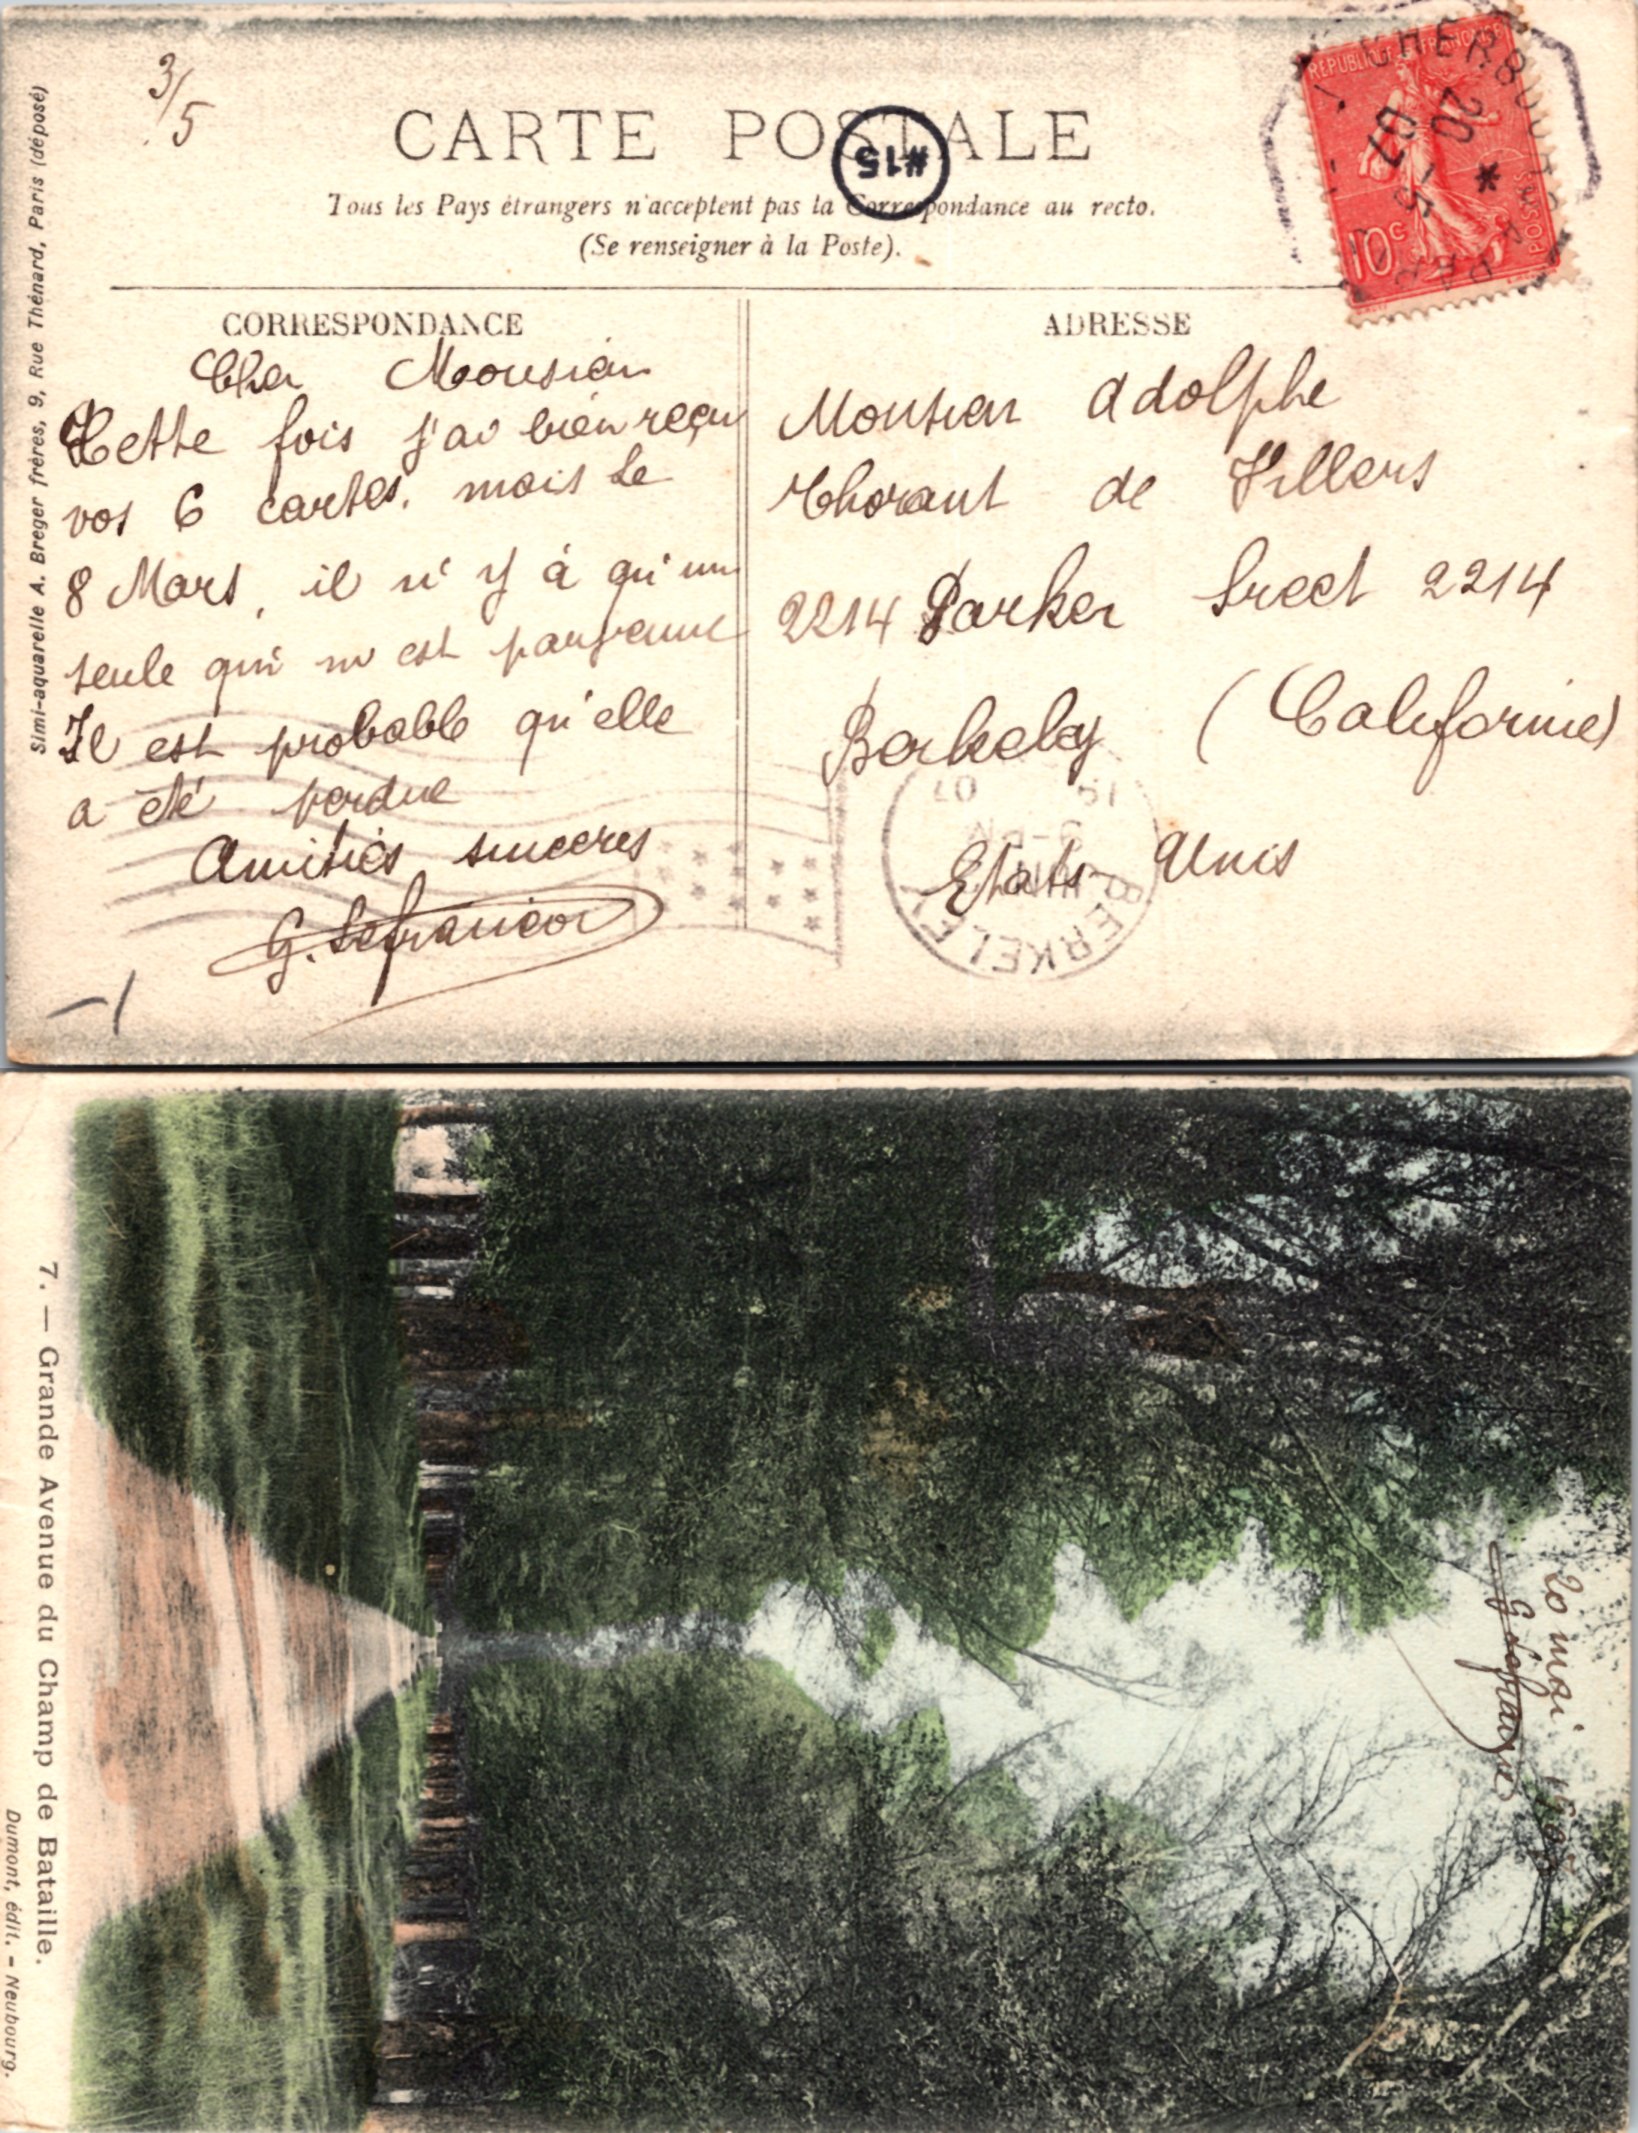 3/5
CARTE POSTALE
#15
Tous les Pays étrangers n'acceptent pas la Correspondance au recto.
(Se renseigner à la Poste).
REPUBLIQUE FRANÇAISE
10c
POSTES
CHERBOURG
20 -5
07
CORRESPONDANCE
Cher Monsieur
Cette fois j'ai bien reçu
vos 6 cartes. mais le
8 Mars, il n'y à qu'une
seule qui m'est parvenue
Il est probable qu'elle
a été perdue
Amitiés sinceres
ADRESSE
Monsieur Adolphe
Thorant de Villers
2214 Parker Sreet 2214
Berkeley (Californie)
Etats-Unis
BERKELEY
07
Simi-aquarelle A. Breger frères, 9, Rue Thénard, Paris (déposé)
-1
20 mai
7. — Grande Avenue du Champ de Bataille.
Dumont, édit. - Neubourg.